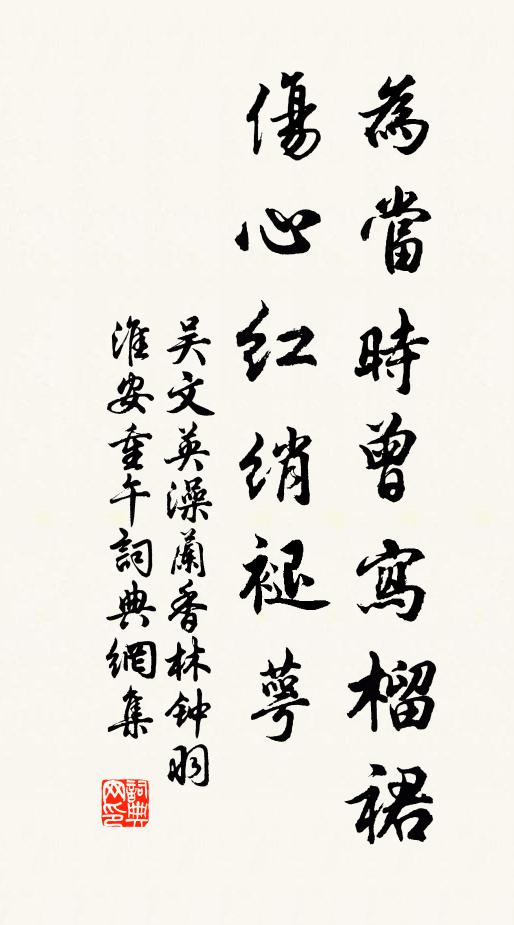 為當時曾寫榴裙
傷心紅綃褪萼
吴文英澡蘭香林钟羽
淮安重午詞典網集
詞典网印